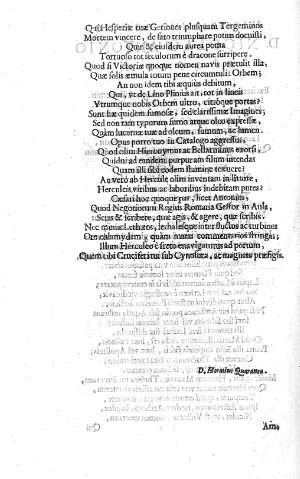 Qui Hesperiæ tuæ Geriones plusquam Tergeminos
Mortem vincere, de fato triumphare potius docuisti
Quæ & eiusdem aurea poma
Tortuoso tot seculorum è dracone surripere.
Quod si Victoriæ quoque nomen navis prætulit illa,
Quæ solis æmula totum pene circumtulit Orbem;
An non idem tibi æquius debitum,
Qui, ut de Lino Plinius ait, tot in lineis
Vtrumque nobis Orbem ultro, citroque portas?
Sunt hæ quidem fumosæ, sed clarissimæ Imagines;
Sed non tam typorum fumo atque olio expressæ,
Quàm lucernæ tuæ ad oleum, fumum, ac lumen.
Opus porro tuo in Catalogo aggressus,
Quod olim Hieronymus ac Bellarminus exorsi,
Quidni ad eundem purpuram filum intendas
Quam illi sibi eodem stamine texuere?
An verò ab Hercule olim inventam
Herculeis viribus ac laboribus indebitam putes?
Cæsari hoc quoque par, licet Antonius,
Quod Negotiorum Regius Romana Gestor in Aula,
Scias & scribere, quæ agis, & agere, quæ scribis.
Nec mireris Lethæos, lethalesque inter fluctus ac turbines
Illum Herculeo è freto enavigamus ad portum,
Quem tibi Cruciferi tui sub Cynosura, ac magnete præfigis.
D. Horatius Quaranta.